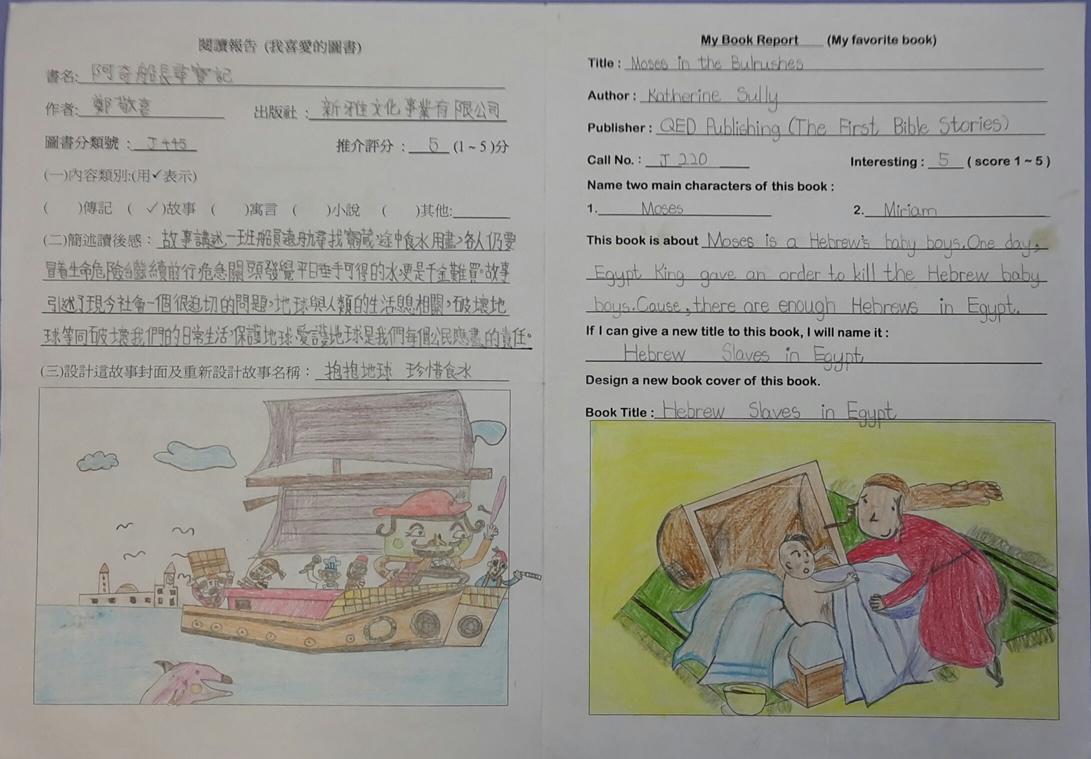 閱讀報告 (我喜愛的圖書)
書名: 阿奇船長尋寶記
作者: 鄭敬喜 出版社： 新雅文化事業有限公司
圖書分類號： J445 推介評分： 5 (1 ~ 5 )分
(一)內容類別:(用✓表示)
( )傳記 ( ✓ )故事 ( )寓言 ( )小說 ( )其他:
(二)簡述讀後感： 故事講述一班船員遠航尋找寶藏,途中食水用盡,各人仍要
冒着生命危險繼續前行,危急關頭發覺平日垂手可得的水便是千金難買。故事
引述了現今社會一個很迫切的問題,地球與人類的生活息息相關,破壞地
球等同破壞我們的日常生活,保護地球,愛護地球是我們每個公民應盡的責任。
(三)設計這故事封面及重新設計故事名稱： 抱抱地球 珍惜食水
My Book Report (My favorite book)
Title : Moses in the Bulrushes
Author : Katherine Sully
Publisher : QED Publishing (The First Bible Stories)
Call No. : J 220 Interesting : 5 ( score 1 ~ 5 )
Name two main characters of this book :
1. Moses 2. Miriam
This book is about Moses is a Hebrew's baby boys. One day,
Egypt King gave an order to kill the Hebrew baby
boys. Cause, there are enough Hebrews in Egypt.
If I can give a new title to this book, I will name it :
Hebrew Slaves in Egypt
Design a new book cover of this book.
Book Title : Hebrew Slaves in Egypt